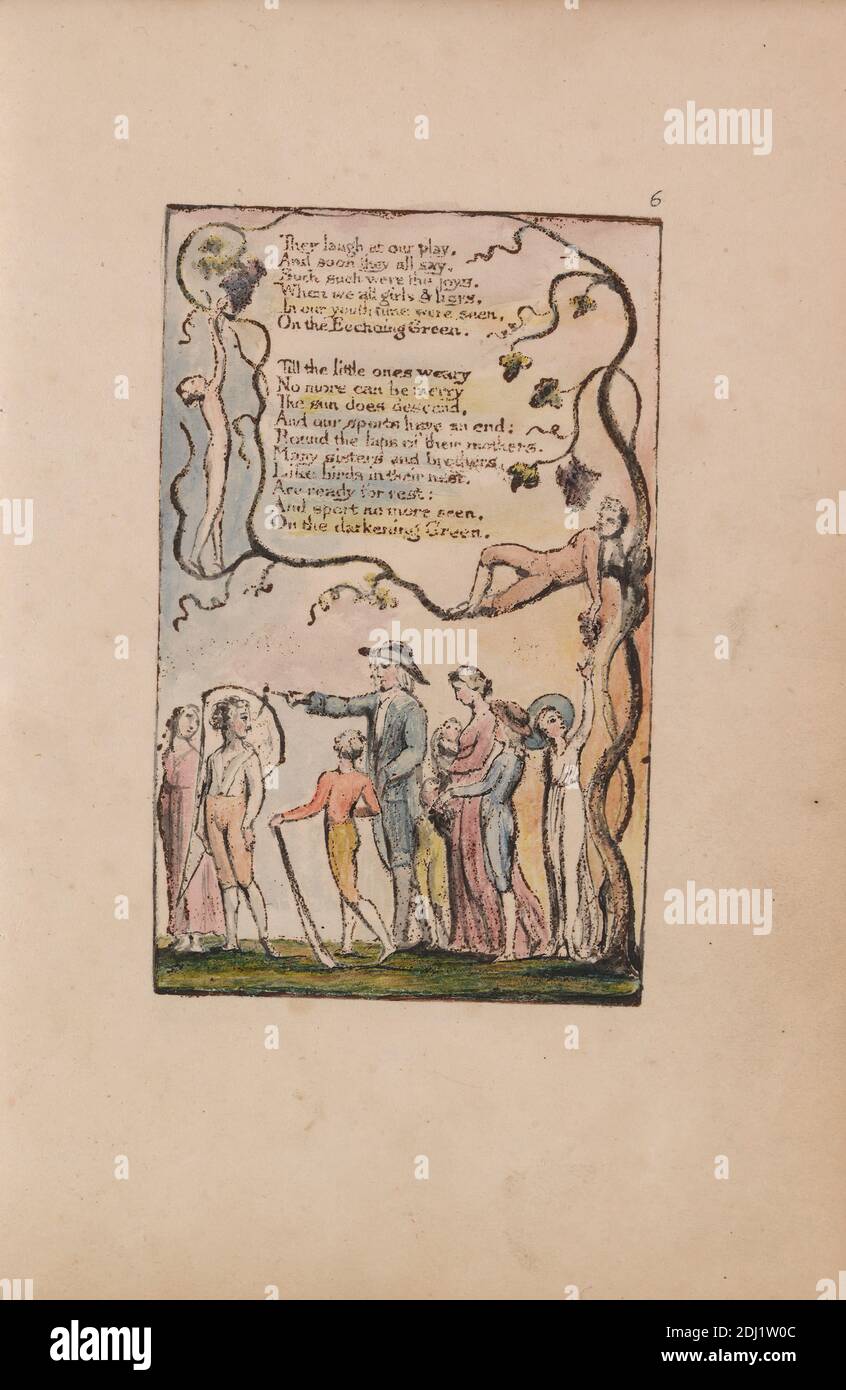 6
They laugh at our play,
And soon they all say,
Such such were the joys.
When we all girls & boys,
In our youth time were seen,
On the Ecchoing Green.
Till the little ones weary
No more can be merry
The sun does descend,
And our sports have an end:
Round the laps of their mothers,
Many sisters and brothers,
Like birds in their nest,
Are ready for rest:
And sport no more seen,
On the darkening Green.
a a a
alamy
a a
a a
a
alamy
a a
a a
alamy
Image ID: 2DJ1W0C
www.alamy.com